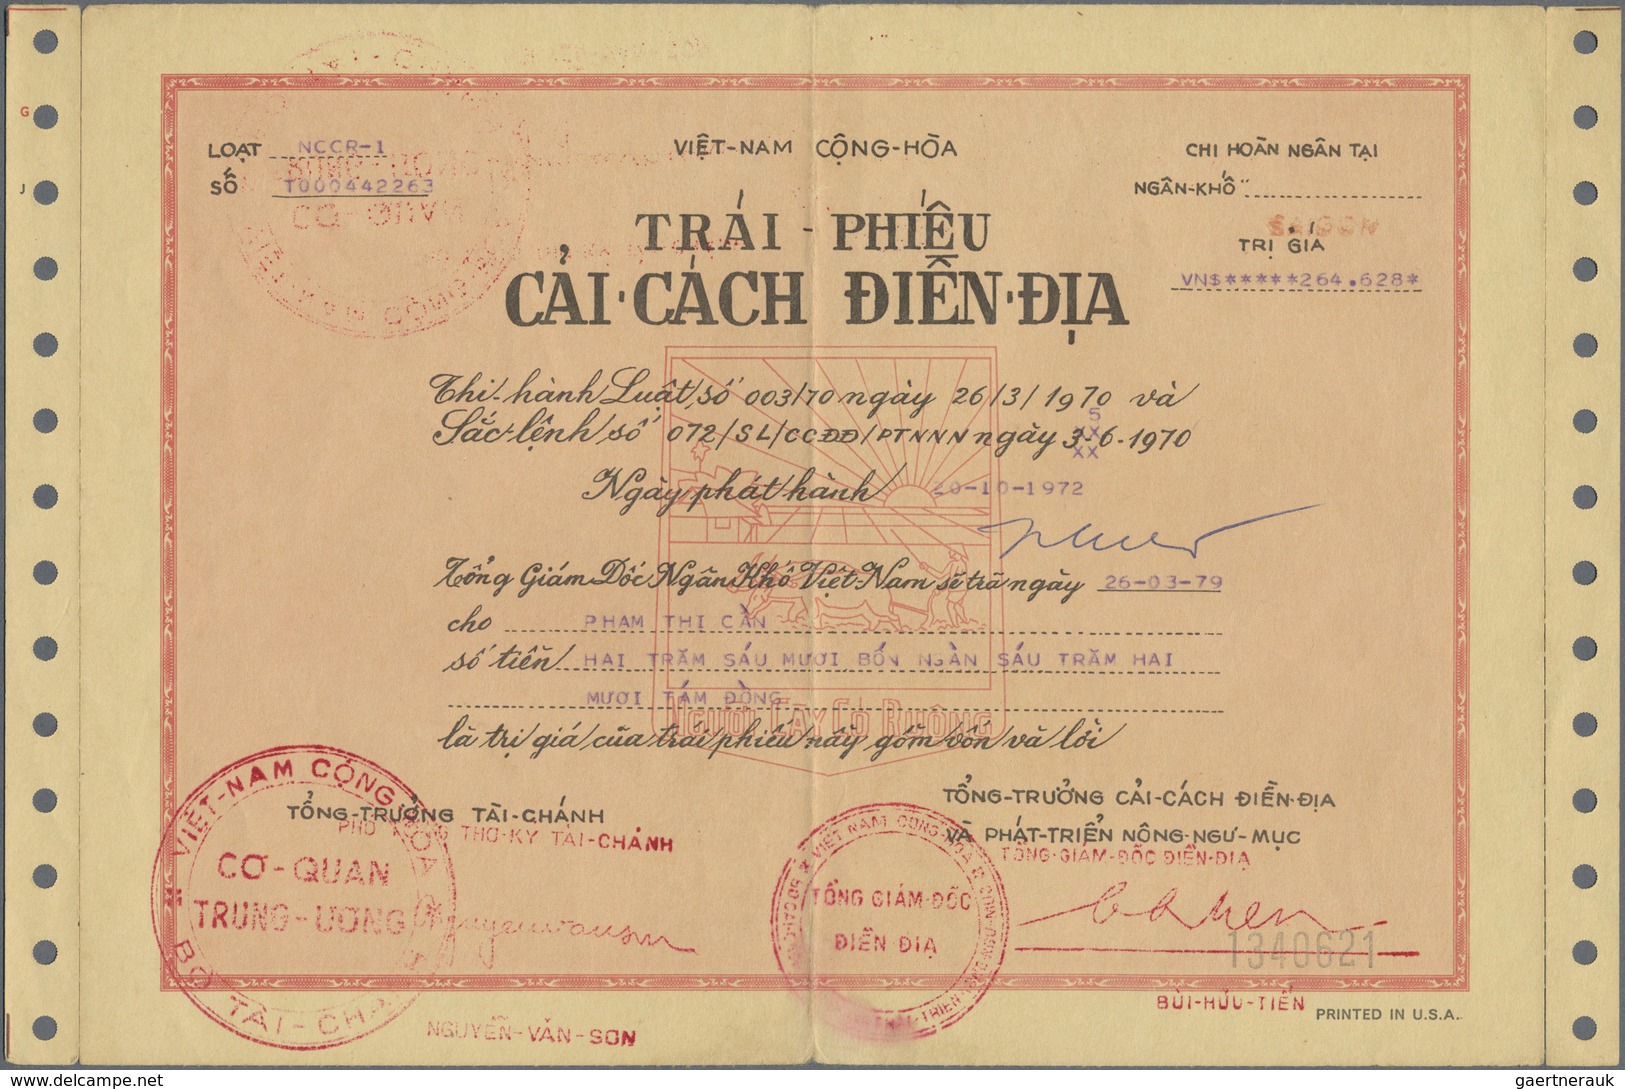 G
J
LOẠT NCCR-1
SỐ T000442263
VIỆT-NAM CỘNG-HÒA
CHI HOÀN NGÂN TẠI
NGÂN-KHỐ
SAIGON
TRỊ GIÁ
VN$*****264.628*
TRÁI-PHIẾU
CẢI-CÁCH ĐIỀN-ĐỊA
Thi-hành Luật số 003/70 ngày 26/3/1970 và
5
Sắc-lệnh số 072/SL/CCĐĐ/PTNNN ngày 3-6-1970
xx
Ngày phát hành 20-10-1972
Tổng Giám Đốc Ngân Khố Việt-Nam sẽ trả ngày 26-03-79
cho PHAM THI CẦN
số tiền HAI TRĂM SÁU MƯƠI BỐN NGÀN SÁU TRĂM HAI
MƯƠI TÁM ĐỒNG
NGƯỜI CÀY CÓ RUỘNG
là trị giá của trái phiếu này gồm vốn và lời
TỔNG-TRƯỞNG TÀI-CHÁNH
TỔNG-TRƯỞNG CẢI-CÁCH ĐIỀN-ĐỊA
VÀ PHÁT-TRIỂN NÔNG-NGƯ-MỤC
TỔNG-GIÁM-ĐỐC ĐIỀN-ĐỊA
VIỆT-NAM CỘNG HÒA
CƠ-QUAN
TRUNG-ƯƠNG
BỘ TÀI-CHÁNH
TỔNG GIÁM-ĐỐC
ĐIỀN ĐỊA
1340621
NGUYỄN-VĂN-SƠN
BÙI-HỮU-TIẾN
PRINTED IN U.S.A.
www.delcampe.net
gaertnerauk